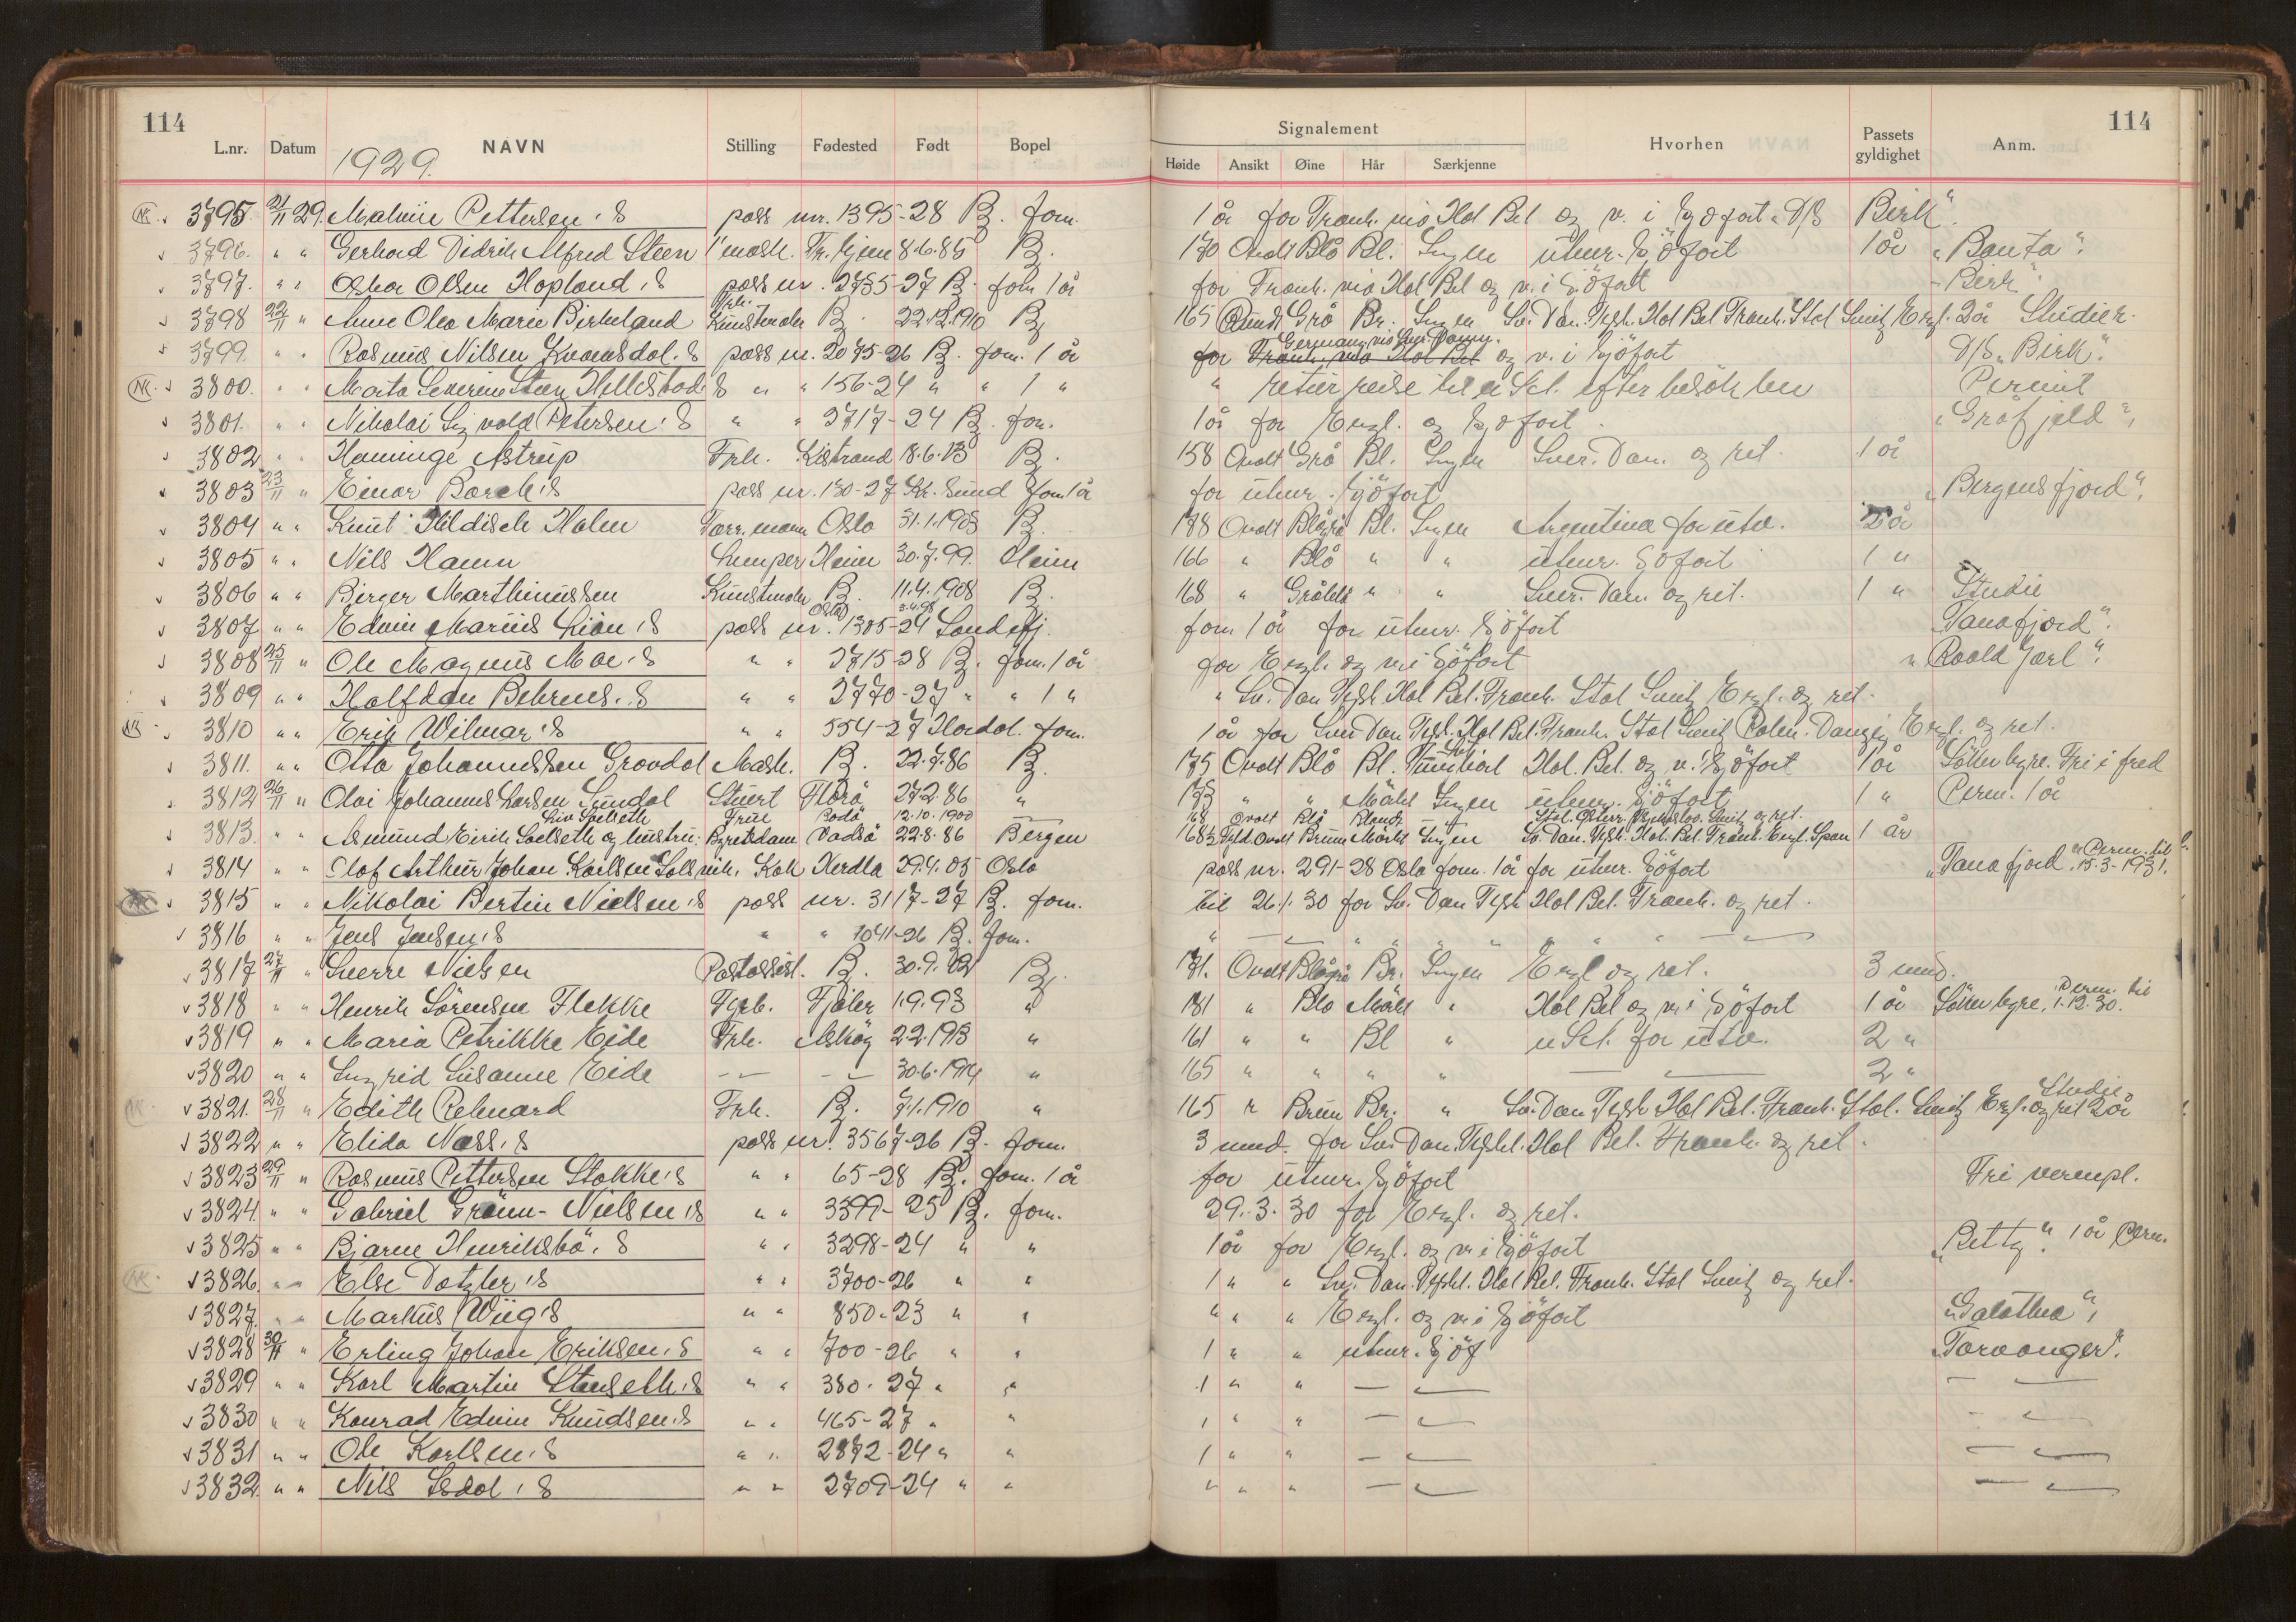 114
114
L.nr. Datum NAVN Stilling Fødested Født Bopel
Signalement Hvorhen Passets gyldighet Anm.
Høide Ansikt Øine Hår Særkjenne
1929.
3795 21/11 29. Pettersen's pass nr. 1395-28 B. fom. 1 år for Frank. via Hol Bel og v. i Sjöfart D/S Birk"
3796. " " Gerhard Didrik Alfred Steen 1' mask. Tr.hjem 8.6.85 B. 170 Ovalt Blå Bl. Ingen utenr. Sjöfart 1 år "Banta".
3797. " " Oskar Olsen Hopland's pass nr. 2735-27 B. fom 1 år for Frank. via Hol Bel og v. i Sjöfart "Birk"
3798 22/11 " Anne Olea Marie Birkeland Frk. Kunstmaler B. 22.12.1910 B. 165 Rund Grå Br. Ingen Sv. Dan. Tysk. Hol Bel Frank. Ital Sveitz Engl. 2 år Studier.
3799. " " Rasmus Nilsen Kvamsdal's pass nr. 2075-26 B. fom. 1 år for Frank. via Hol Bel og v. i Sjöfart D/S "Birk".
3800. " " Marta Severine Steen Hillestad's " " 156-24 " " 1 " " retur reise til u St. efter besök her Permit
3801. " " Nikolai Sigvald Petersen's " " 2717-24 B. fom. 1 år for Engl. og Sjöfart. "Gråfjeld",
3802 " " Astrup Frk. Kistrand 18.6.13 B. 158 Ovalt Grå Bl. Ingen Sver. Dan. og ret. 1 år
3803 23/11 " Einar Barck's pass nr. 130-27 Kr.sund fom 1 år for utenr. Sjöfart "Bergensfjord".
3804 " " Knut Holm Forr.mann Oslo 31.1.1903 B. 188 Ovalt Blågrå Bl. Ingen Argentina for utv. 2 år
3805 " " Nils Hamn Lemper Heim 30.7.99. Heim 166 " Blå " " utenr. Sjöfart 1 "
3806 " " Birger Marthinussen Kunstmaler B. 11.4.1908 B. 168 " Gråblå " " Sver. Dan. og ret. 1 " Studie
3807 " " Edvin Marius Lien's pass nr. 1305-24 Sandefj. fom 1 år for utenr. Sjöfart "Tanafjord".
3808 25/11 " Ole Magnus Moe's " " 2715-28 B. fom. 1 år for Engl. og v. i Sjöfart "Roald Jarl".
3809 " " Halfdan Behrens's " " 2770-27 " " 1 " " Sv. Dan Tysk Hol Bel. Frank. Ital Sveitz Engl. og ret.
3810 " " Erik Wilmar's " " 554-27 Hordal. fom. 1 år for Sver Dan Tysk. Hol Bel. Frank. Ital Sveitz Polen. Danzig Engl. og ret.
3811. " " Otto Johannessen Grovdal Mask. B. 22.7.86 B. 175 Ovalt Blå Bl. Hol. Bel. og v. i Sjöfart 1 år Söker hyre. Fri i fred
3812 26/11 " Olai Johannes Larsen Sundal Stuert Florö 27.2.86 " 173 " " Mörkt Ingen utenr. Sjöfart 1 " Perm. 1 år
Liv Selseth Frue Bodö 12.10.1900 68 Ovalt Blå Blond Ital. Österr. Sveitz og ret.
3813. " " Asmund Eirik Selseth og hustru Vadsö 22.8.86 Bergen 168½ Fyld. Ovalt Brune Mörkt Ingen Sv. Dan. Tysk. Hol. Bel. Frank. Engl. Span 1 år
3814 " " Olaf Arthur Johan Karlsen Kok Herdla 29.4.05 Oslo pass nr. 291-28 Oslo fom. 1 år for utenr. Sjöfart "Tanafjord". Perm. til 15.3-1931.
3815 " " Nikolai Bertin Nielsen's pass nr. 3117-27 B. fom. til 26.1.30 for Sv. Dan Tysk Hol Bel. Frank. og ret.
3816 " " Jens Jensen's " " 1041-26 B. fom. " — " " " " " " " —
3817 27/11 " Sverre Nielsen Postassist. B. 30.9.02 B. 181. Ovalt Blågrå Br. Ingen Engl og ret. 3 mnd.
3818 " " Henrik Sörensen Flekke Fyrb. Fjaler 1.9.93 " 181 " Blå Mörkt " Hol Bel og v. i Sjöfart 1 år Söker hyre. Perm. til 1.12.30.
3819 " " Maria Petrikke Eide Frk. Askøy 2.2.1913 " 161 " " Bl " u St. for utv. 2 "
3820 " " Ingrid Susanne Eide — — 30.6.1914 " 165 " " " " — 2 "
3821. 28/11 " Edith Rehnard Frk. B. 7.1.1910 " 165 " Brun Br. " Sv. Dan Tysk Hol Bel. Frank. Ital. Sveitz Engl. og ret 2 år Studie
3822 " " Elida Næss's pass nr. 3567-26 B. fom. 3 mnd. for Sv. Dan. Tyskl. Hol Bel. Frank. og ret.
3823 29/11 " Rasmus Pettersen Stokke's " " 65-28 B. fom. 1 år for utenr. Sjöfart Fri vernepl.
3824. " " Gabriel Grönn-Nielsen's " " 3399-25 B. fom. 29.3.30 for Engl. og ret.
3825 " " Bjarne Henriksbö's " " 3298-24 " " 1 år for Engl. og v. i Sjöfart "Betty". 1 år Perm.
3826. " " Else Dotzler's " " 3700-26 " " 1 " " Sv. Dan. Tyskl. Hol Bel. Frank. Ital Sveitz og ret.
3827. " " Markus Wiig's " " 850-23 " " " " " Engl. og v. i Sjöfart "Galathea",
3828 30/11 " Erling Johan Eriksen's " " 700-26 " " 1 " " utenr. Sjöf "Torvanger".
3829 " " Karl Martin Stenseth's " " 380-27 " " 1 " " — —
3830 " " Konrad Edvin Knudsen's " " 465-27 " " 1 " " — —
3831 " " Ole Karlsen's " " 2872-24 " " 1 " " — —
3832. " " Nils 's " " 2709-24 " " " " " — —